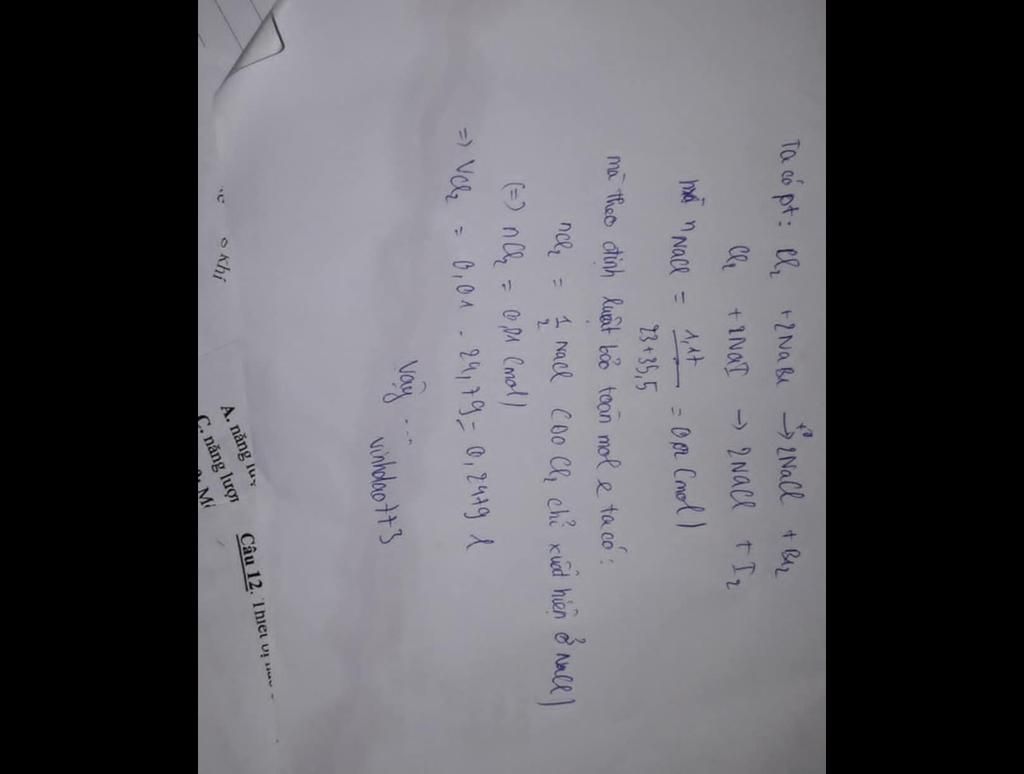 Ta có pt: Cl2 + 2NaBr → 2NaCl + Br2
Cl2 + 2NaI → 2NaCl + I2
n NaCl = 1,17 / 23+35,5 = 0,02 (mol)
mà theo định luật bảo toàn mol e ta có:
nCl2 = 1/2 NaCl (Do Cl2 chỉ xuất hiện ở NaCl)
(=) nCl2 = 0,01 (mol)
=) VCl2 = 0,01 . 24,79 = 0,2479 l
Vậy ...
vinhdao773
khí
A. năng
C. năng lượn
Câu 12. Thiết bị